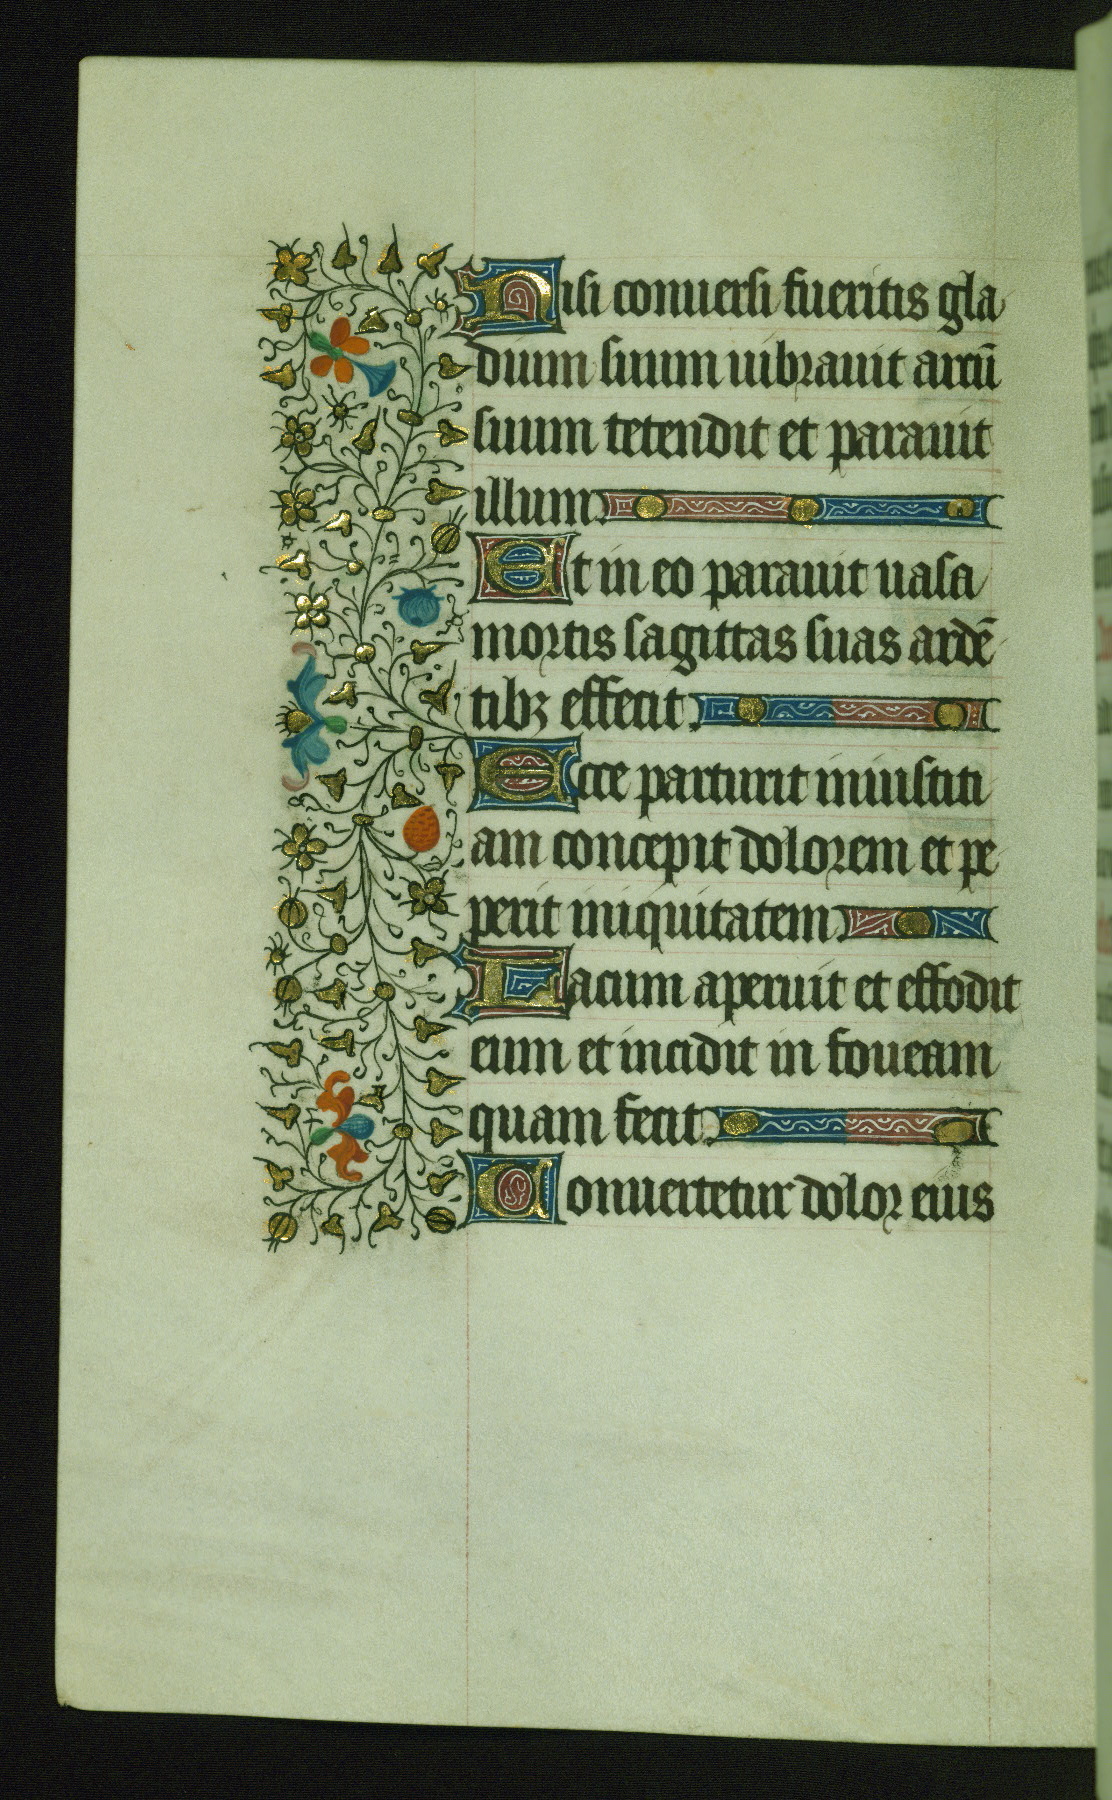 Nisi conuersi fueritis gla
dium suum uibrauit arcū
suum tetendit et parauit
illum.
Et in eo parauit uasa
mortis sagittas suas ardē
tibꝫ effecit.
Ecce parturit iniusticia
am concepit dolorem et pe
perit iniquitatem.
Lacum aperuit et effodit
eum et incidit in foueam
quam fecit.
Conuertetur dolor eius